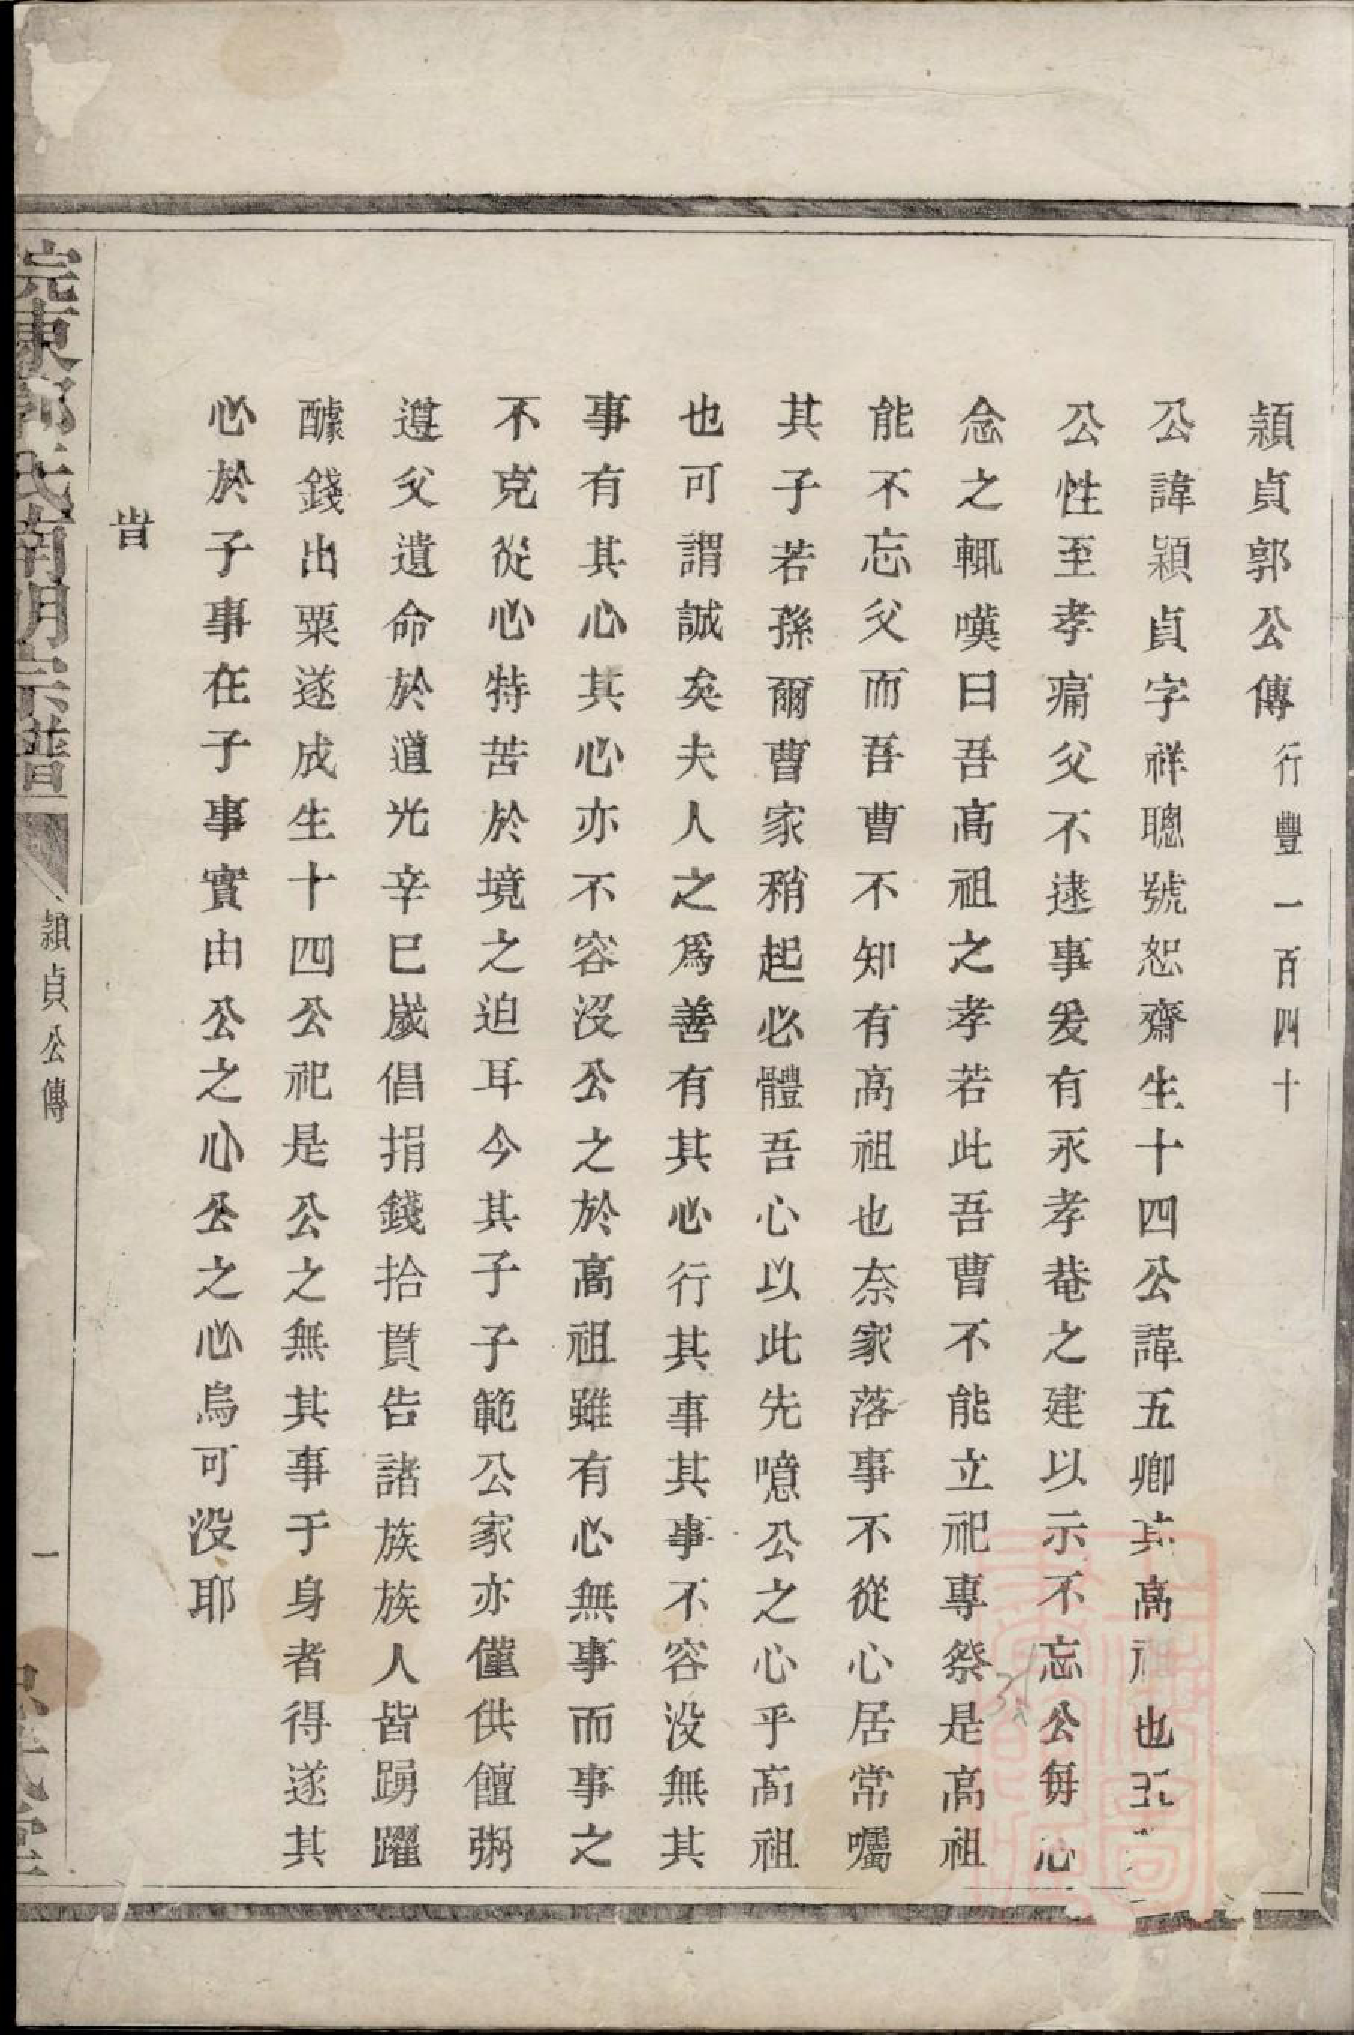 穎貞郭公傳 行豐一百四十
公諱穎貞字祥聰號恕齋生十四公諱五卿其高祖也五
公性至孝痛父不逮事爰有永孝菴之建以示不忘公每心
念之輒嘆曰吾高祖之孝若此吾曹不能立祀專祭是高祖
能不忘父而吾曹不知有高祖也奈家落事不從心居常囑
其子若孫爾曹家稍起必體吾心以此先噫公之心乎高祖
也可謂誠矣夫人之爲善有其心行其事其事不容没無其
事有其心其心亦不容没公之於高祖雖有心無事而事之
不克從心特苦於境之迫耳今其子子範公家亦僅供饘粥
遵父遺命於道光辛巳歲倡捐錢拾貫告諸族族人皆踴躍
醵錢出粟遂成生十四公祀是公之無其事于身者得遂其
心於子事在子事實由公之心公之心烏可没耶
旹
東郭氏南明宗譜
穎貞公傳
一